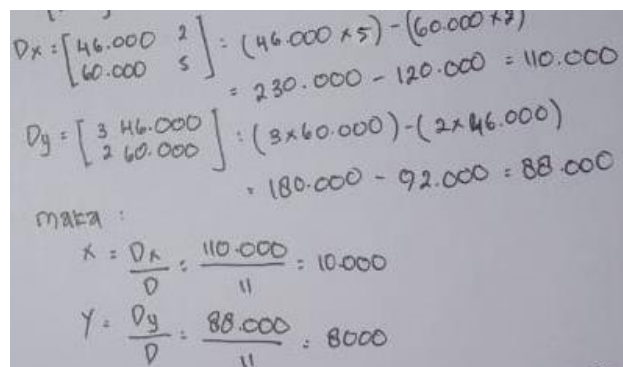 Dx = [46.000 2
60.000 5] = (46.000 x 5) - (60.000 x 2)
= 230.000 - 120.000 = 110.000
Dy = [3 46.000
2 60.000] = (3 x 60.000) - (2 x 46.000)
= 180.000 - 92.000 = 88.000
maka :
X = Dx/D = 110.000/11 = 10.000
Y = Dy/D = 88.000/11 = 8000